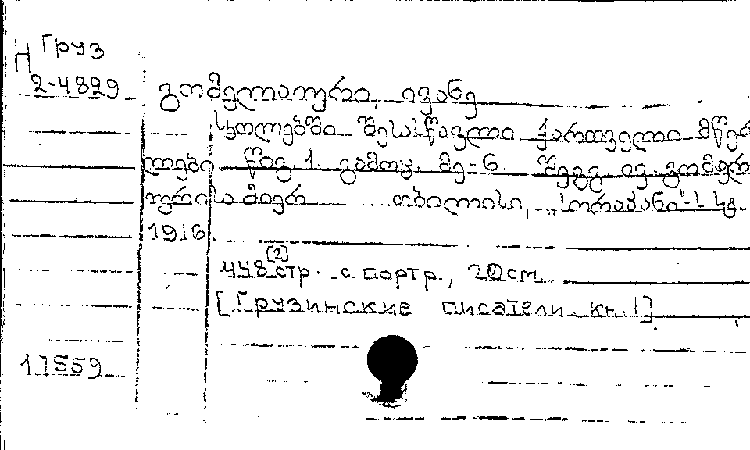 Груз
2-4829 გომელაური, ივანე
სკოლებში შესასწავლი ქართველი მწერ
ლები წიგ. 1. გამოც. მე-6. შედგ. ივ. გომელ
აურისა მიერ თბილისი, „სორაპანი"-ს სტ.
1916.
448 [2] стр. с портр., 20см.
[Грузинские писатели. кн. 1]
17559